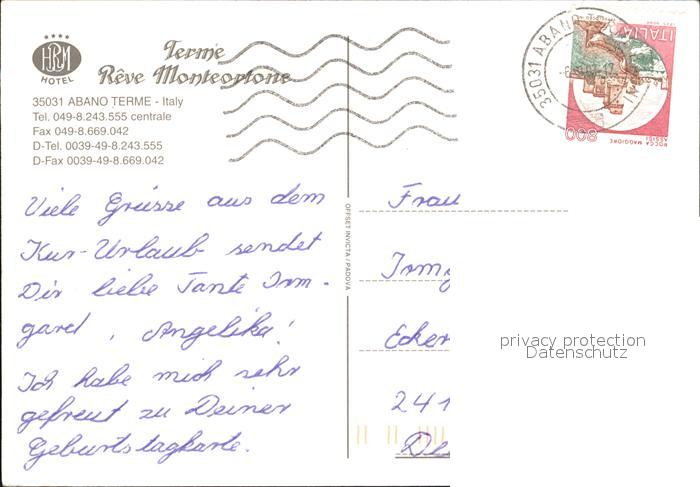 HRM
HOTEL
Terme
Rêve Monteortone
35031 ABANO TERME - Italy
Tel. 049-8.243.555 centrale
Fax 049-8.669.042
D-Tel. 0039-49-8.243.555
D-Fax 0039-49-8.669.042
Viele Grüsse aus dem
Kur-Urlaub sendet
Dir liebe Tante Irm-
gard, Angelika!
Ich habe mich sehr
gefreut zu Deiner
Geburtstagkarte.
OFFSET INVICTA / PADOVA
35031 ABANO
ITALIA
800
ROCCA MAGGIORE
ASSISI
Frau
Irmg
Ecker
241
De
privacy protection
Datenschutz